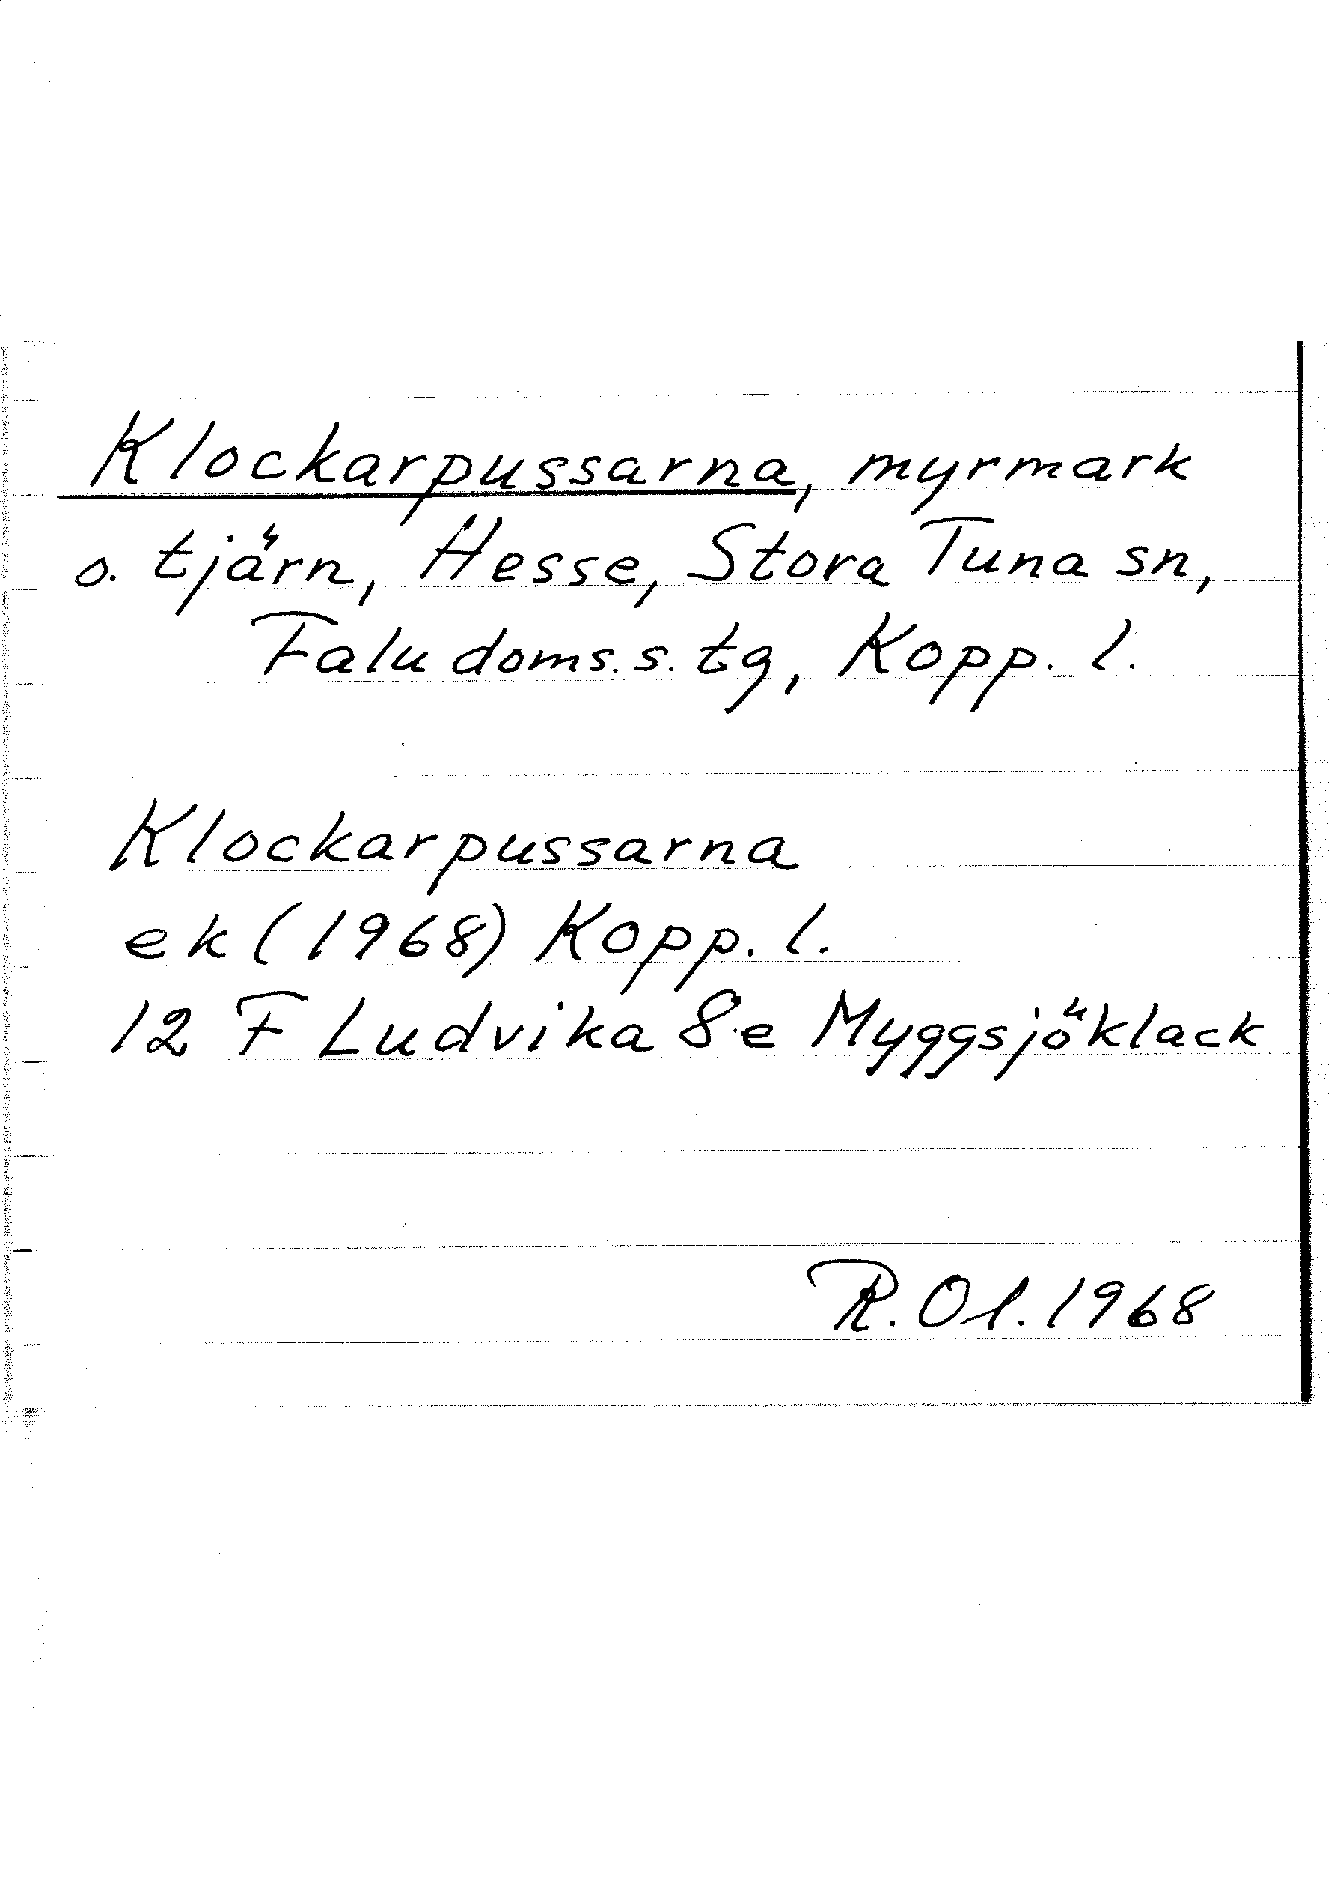 Klockarpussarna, myrmark
o. tjärn, Hesse, Stora Tuna sn,
Falu doms.s. tg, Kopp. l.
Klockarpussarna
ek (1968) Kopp. l.
12 F Ludvika 8e Myggsjöklack
R. Ol. 1968